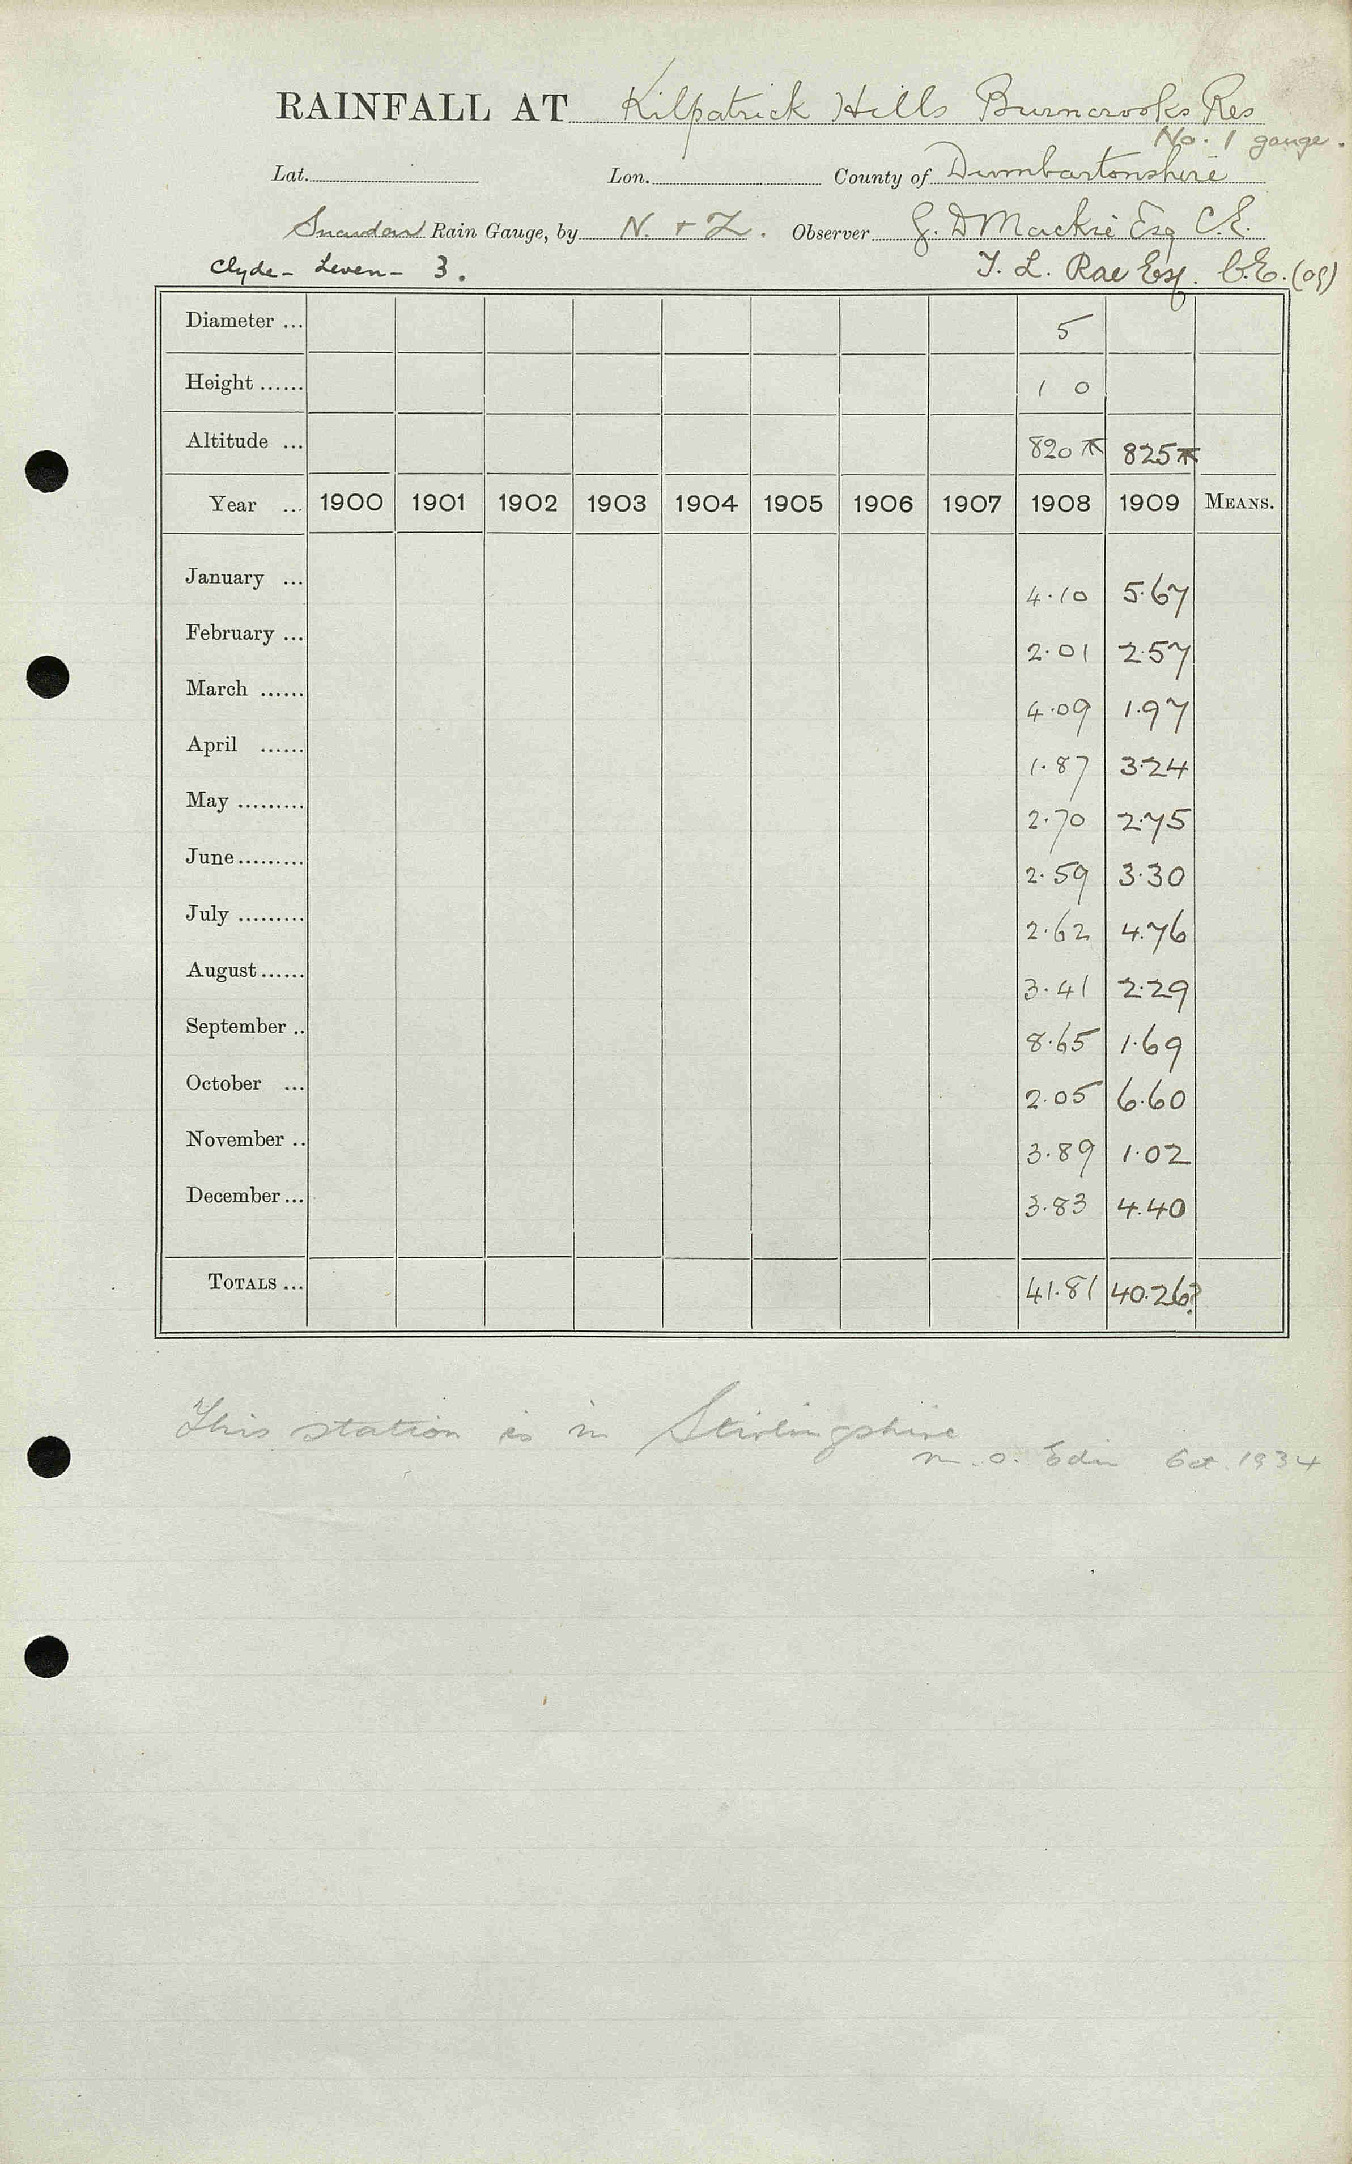 RAINFALL AT Kilpatrick Hills Burncrooks Res
No. 1 gauge.
Lat. Lon. County of Dumbartonshire
Snowdon Rain Gauge, by N. + Z. Observer G. D Mackie Esq C.E.
Clyde - Leven - 3. T. L. Rae Esq. C.E. (09)
Diameter ... 5
Height ...... 1 0
Altitude ... 820 825
Year ... 1900 1901 1902 1903 1904 1905 1906 1907 1908 1909 MEANS.
January ... 4.10 5.67
February ... 2.01 2.57
March ...... 4.09 1.97
April ...... 1.87 3.24
May ......... 2.70 2.75
June......... 2.59 3.30
July ......... 2.62 4.76
August...... 3.41 2.29
September .. 8.65 1.69
October ... 2.05 6.60
November .. 3.89 1.02
December... 3.83 4.40
TOTALS ... 41.81 40.26?
This station is in Stirlingshire
M.O. Edin Oct. 1934